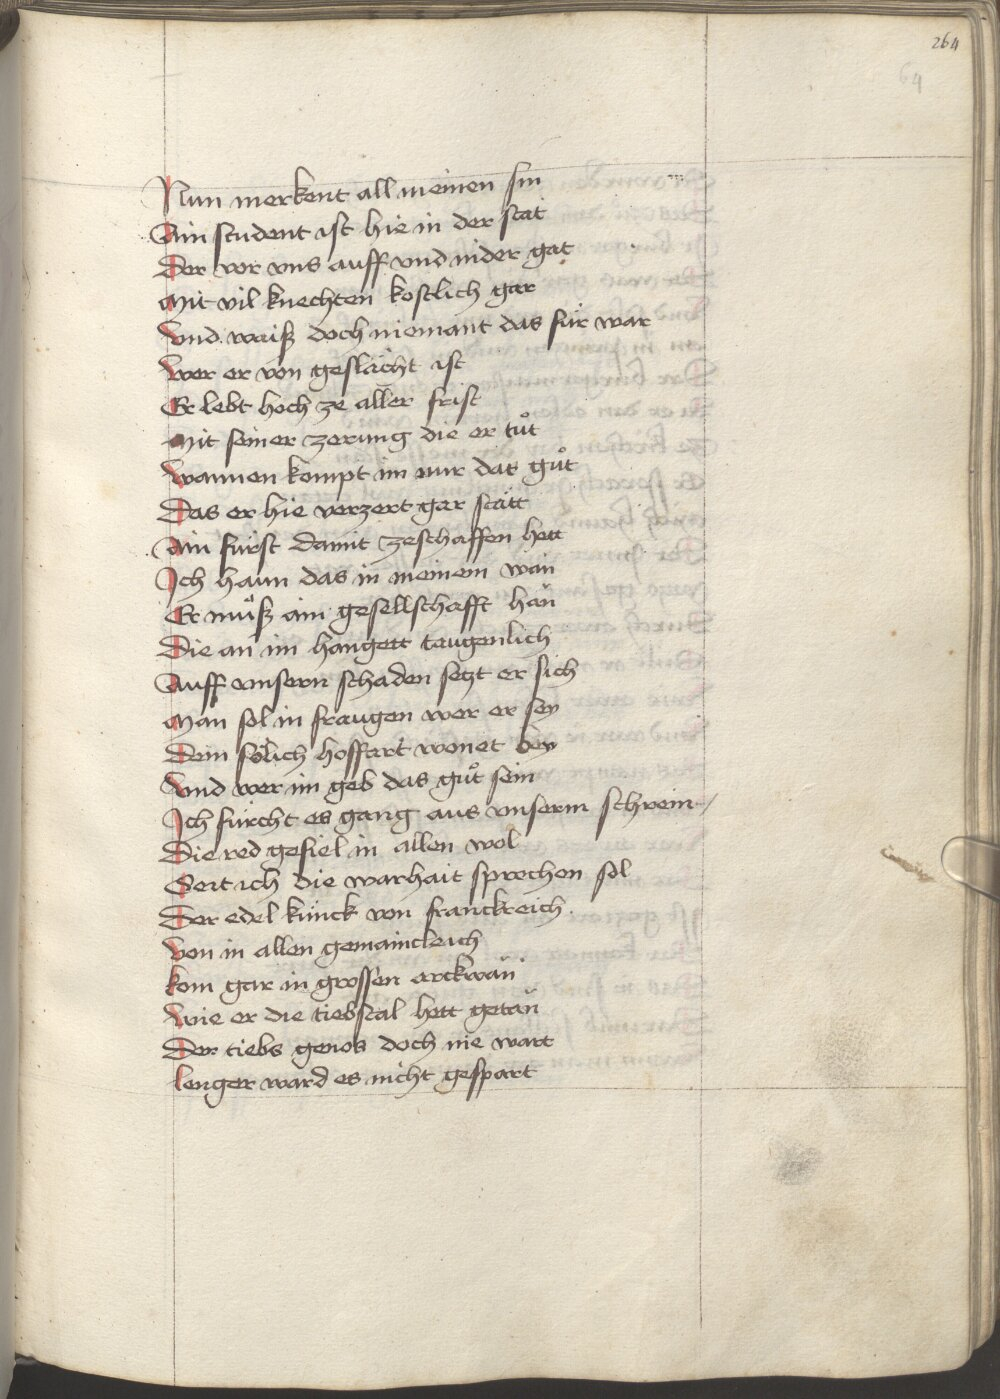 264
64
Nun merkent all meinen sin
Ain student ist hie in der stat
Der vor vns auff vnd nider gat
Mit vil knechten kostlich gar
Vnd waiß doch niemant das für war
Wer er von geslächt ist
Er lebt hoch ze aller frist
Mit seiner zerung die er tuͦt
Wannen kompt im nur das guͦt
Das er hie verzert gar stätt
Ain fürst damit zeschaffen hett
Ich haun das in meinem wan
Er muͦß ain gesellschafft han
Die an im hangett taugenlich
Auff vnsern schaden setzt er sich
Man sol in fraugen wer er sey
Dem sölich hoffart wonet bey
Vnd wer im geb das guͦt sein
Ich fürcht es gang aus vnserm schrein
Die red gefiel in allen wol
Seit ich die warhait sprechen sol
Der edel künck von franckreich
Von in allen gemaincleich
kom gar in grossen arckwan
Wie er die tiebstal hett getan
Der tiebs genos doch nie wart
lenger ward es nicht gespart